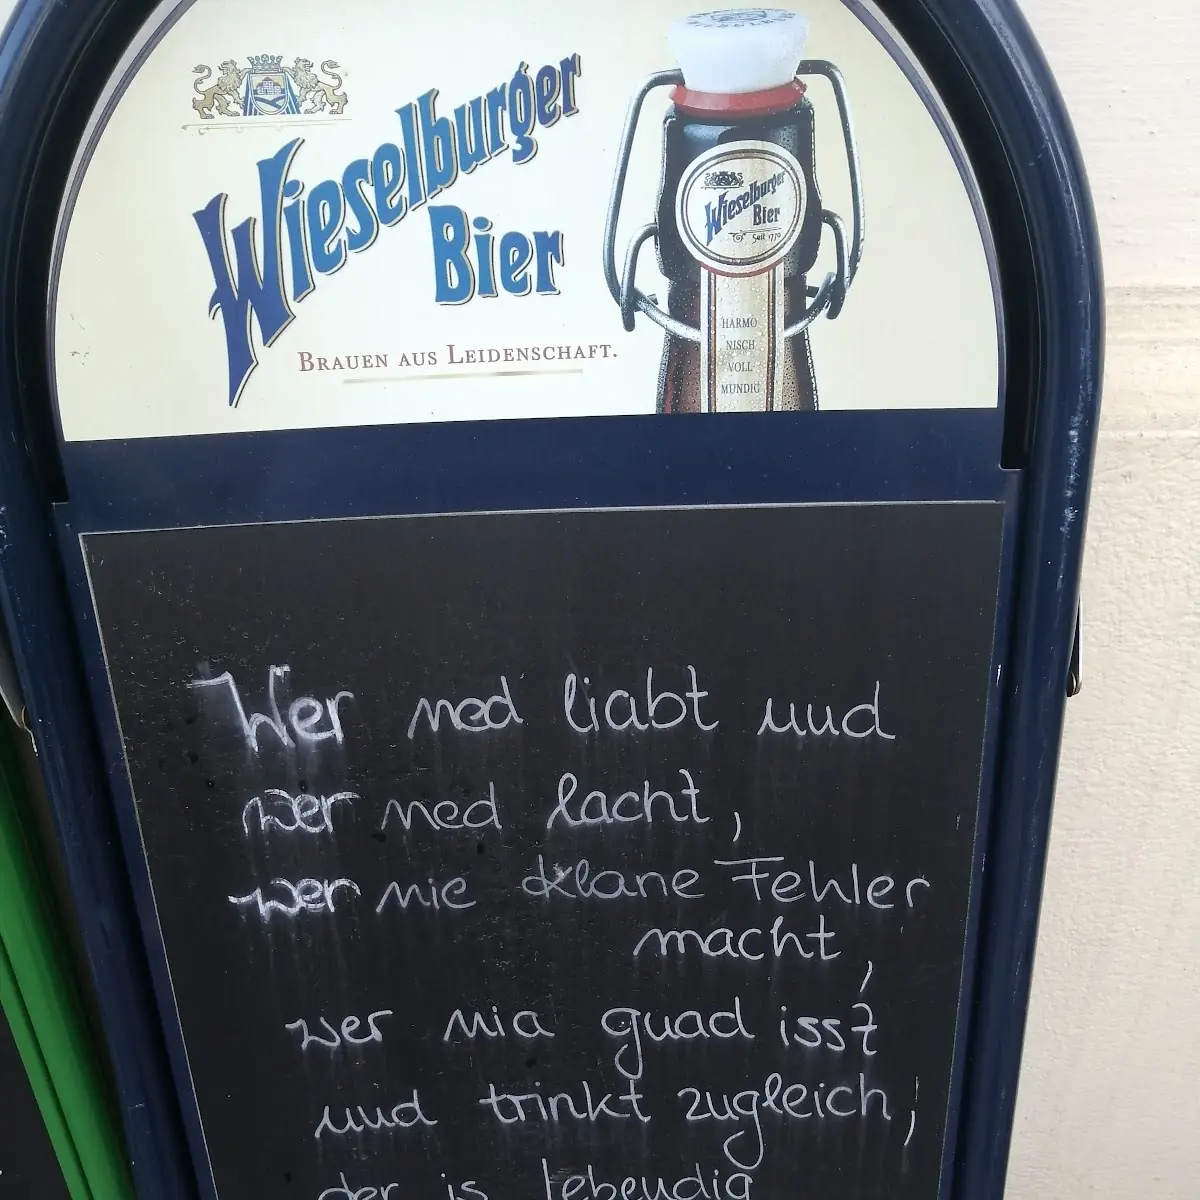 Wieselburger
Bier
BRAUEN AUS LEIDENSCHAFT.
Wieselburger
Bier
Seit 1770
HARMO
NISCH
VOLL
MUNDIG
Wer ned liabt und
wer ned lacht,
wer nie klane Fehler
macht,
wer nia guad isst
und trinkt zugleich,
der is lebendig